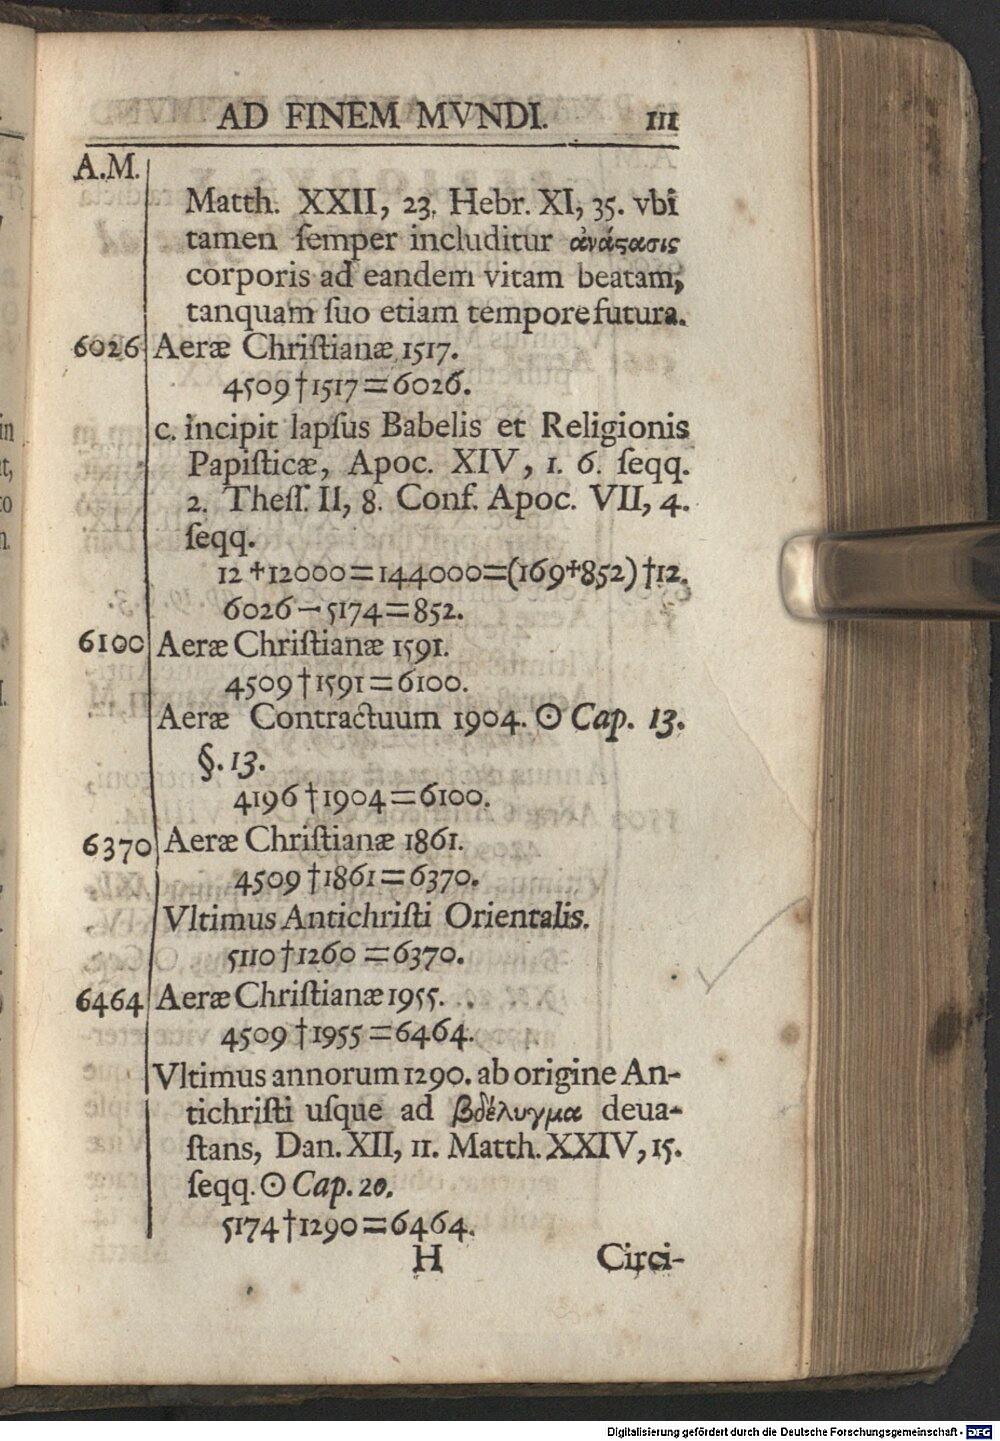 AD FINEM MVNDI. 111
A.M.
Matth. XXII, 23. Hebr. XI, 35. vbi
tamen ſemper includitur ἀνάϛασις
corporis ad eandem vitam beatam,
tanquam ſuo etiam tempore futura.
6026 Aeræ Chriſtianæ 1517.
4509 † 1517 = 6026.
c. incipit lapſus Babelis et Religionis
Papiſticæ, Apoc. XIV, 1. 6. ſeqq.
2. Theſſ. II, 8. Conf. Apoc. VII, 4.
ſeqq.
12 † 12000 = 144000 = (169 † 852) † 12.
6026 — 5174 = 852.
6100 Aeræ Chriſtianæ 1591.
4509 † 1591 = 6100.
Aeræ Contractuum 1904. ☉ Cap. 13.
§. 13.
4196 † 1904 = 6100.
6370 Aeræ Chriſtianæ 1861.
4509 † 1861 = 6370.
Vltimus Antichriſti Orientalis.
5110 † 1260 = 6370.
6464 Aeræ Chriſtianæ 1955.
4509 † 1955 = 6464.
Vltimus annorum 1290. ab origine An-
tichriſti uſque ad βδέλυγμα deua-
ſtans, Dan. XII, 11. Matth. XXIV, 15.
ſeqq. ☉ Cap. 20.
5174 † 1290 = 6464.
H Circi-
Digitalisierung gefördert durch die Deutsche Forschungsgemeinschaft - DFG